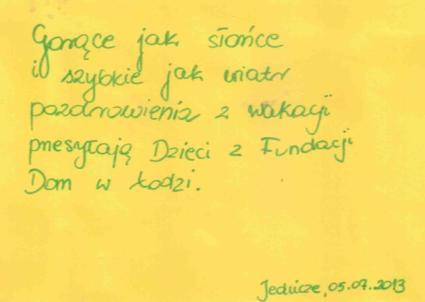 Gorące jak słońce
i szybkie jak wiatr
pozdrowienia z wakacji
przesyłają Dzieci z Fundacji
Dom w Łodzi.
05.07.2013